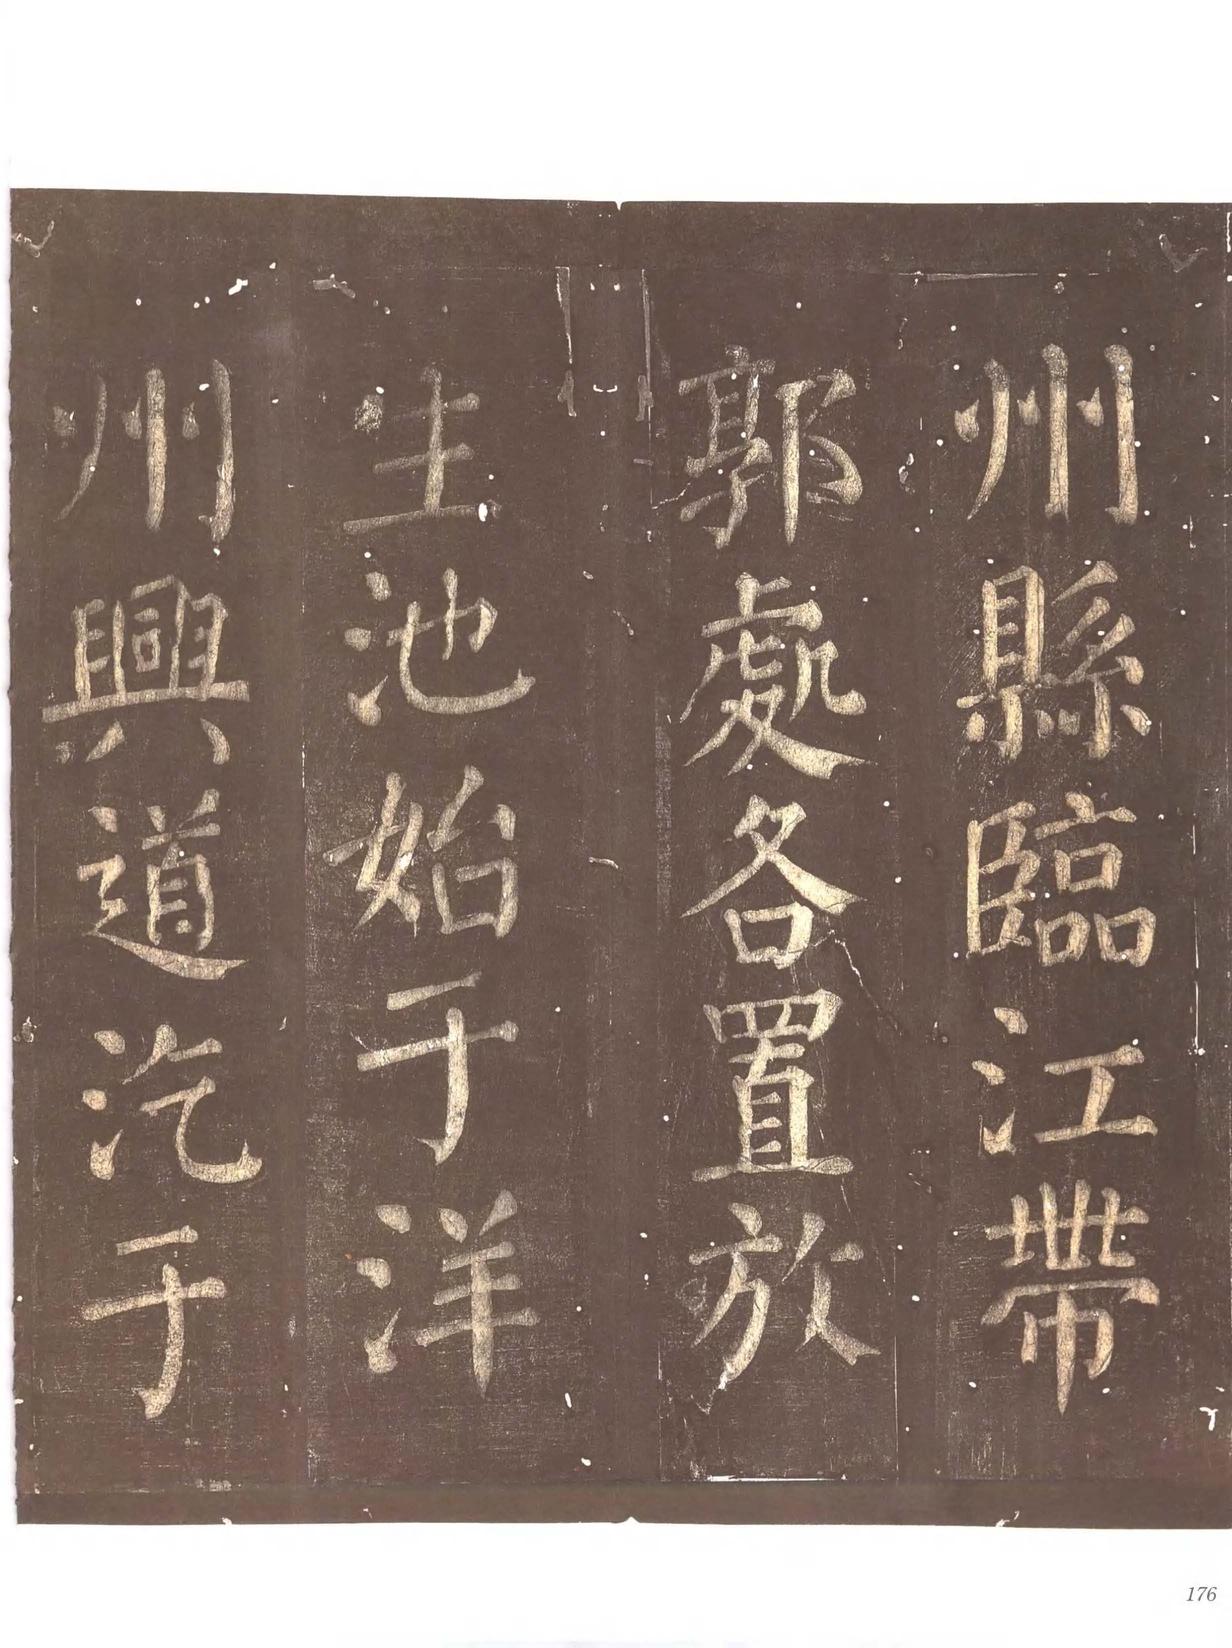 州縣臨江帶
郭處各置放
生池始于洋
州興道汔于
176